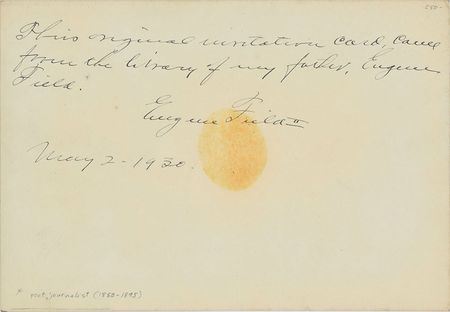 250-
This original invitation card, came
from the library of my father, Eugene
Field.
Eugene Field II
May 2-1930.
* poet, journalist (1850-1895)